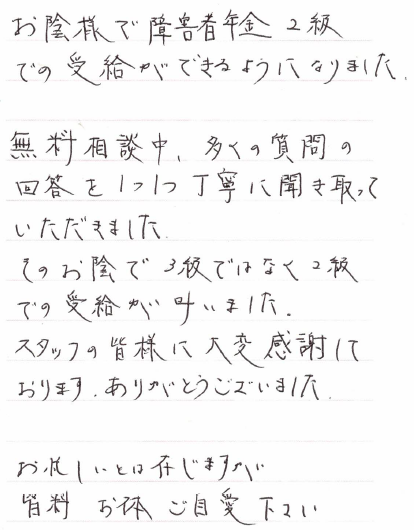 お陰様で障害者年金2級
での受給ができるようになりました.
無料相談中、多くの質問の
回答を1つ1つ丁寧に聞き取って
いただきました.
そのお陰で3級ではなく2級
での受給が叶いました.
スタッフの皆様に大変感謝して
おります.ありがとうございました.
お忙しいとは存じますが
皆料 お体 ご自愛 下さい